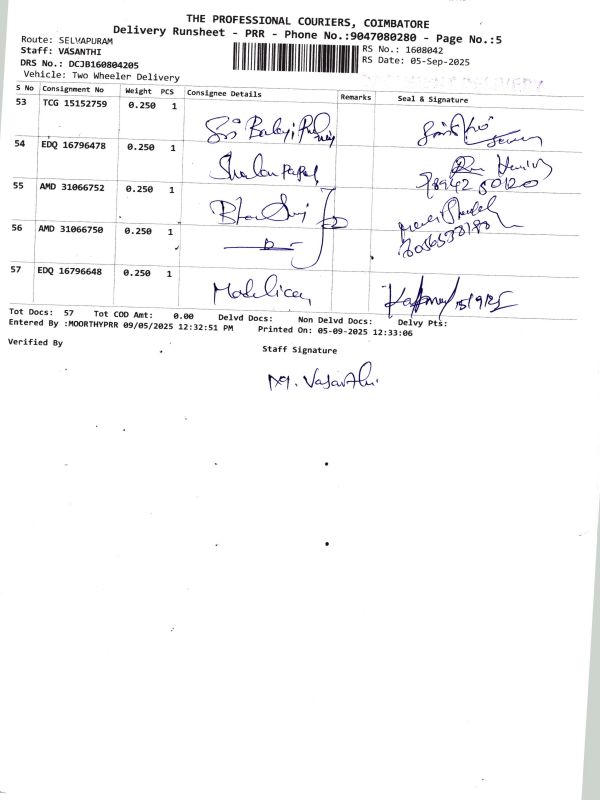 THE PROFESSIONAL COURIERS, COIMBATORE
Delivery Runsheet - PRR - Phone No.:9047080280 - Page No.:5
Route: SELVAPURAM
Staff: VASANTHI
RS No.: 1608042
DRS No.: DCJB160804205
RS Date: 05-Sep-2025
Vehicle: Two Wheeler Delivery
S No Consignment No Weight PCS Consignee Details Remarks Seal & Signature
53 TCG 15152759 0.250 1
Sri Balaji
54 EDQ 16796478 0.250 1
55 AMD 31066752 0.250 1
56 AMD 31066750 0.250 1
57 EDQ 16796648 0.250 1
Tot Docs: 57 Tot COD Amt: 0.00 Delvd Docs: Non Delvd Docs: Delvy Pts:
Entered By :MOORTHYPRR 09/05/2025 12:32:51 PM Printed On: 05-09-2025 12:33:06
Verified By
Staff Signature
M. Vasanthi